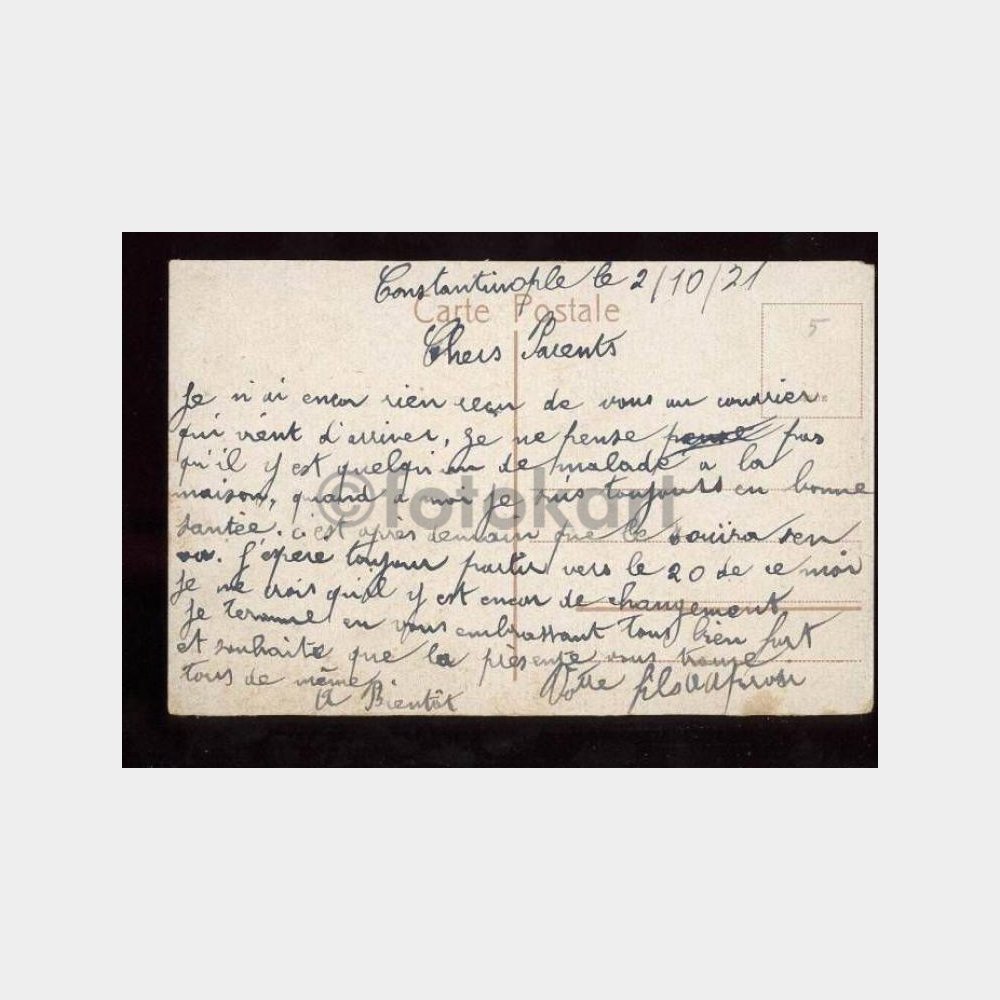 Constantinople le 2/10/21
Carte Postale
5
Chers Parents
Je n'ai encor rien reçu de vous au courrier
qui vient d'arriver, je ne pense pas
qu'il y est quelqu'un de malade a la
maison, quand a moi je suis toujours en bonne
santée. c'est après demain que le sen
J'épere toujour partir vers le 20 de ce moi
je ne crois qu'il y est encor de changement
je termine en vous embrassant tous bien fort
et souhaite que la présente vous trouve
tous de même.
Votre fils
A Bientôt
©fotokart